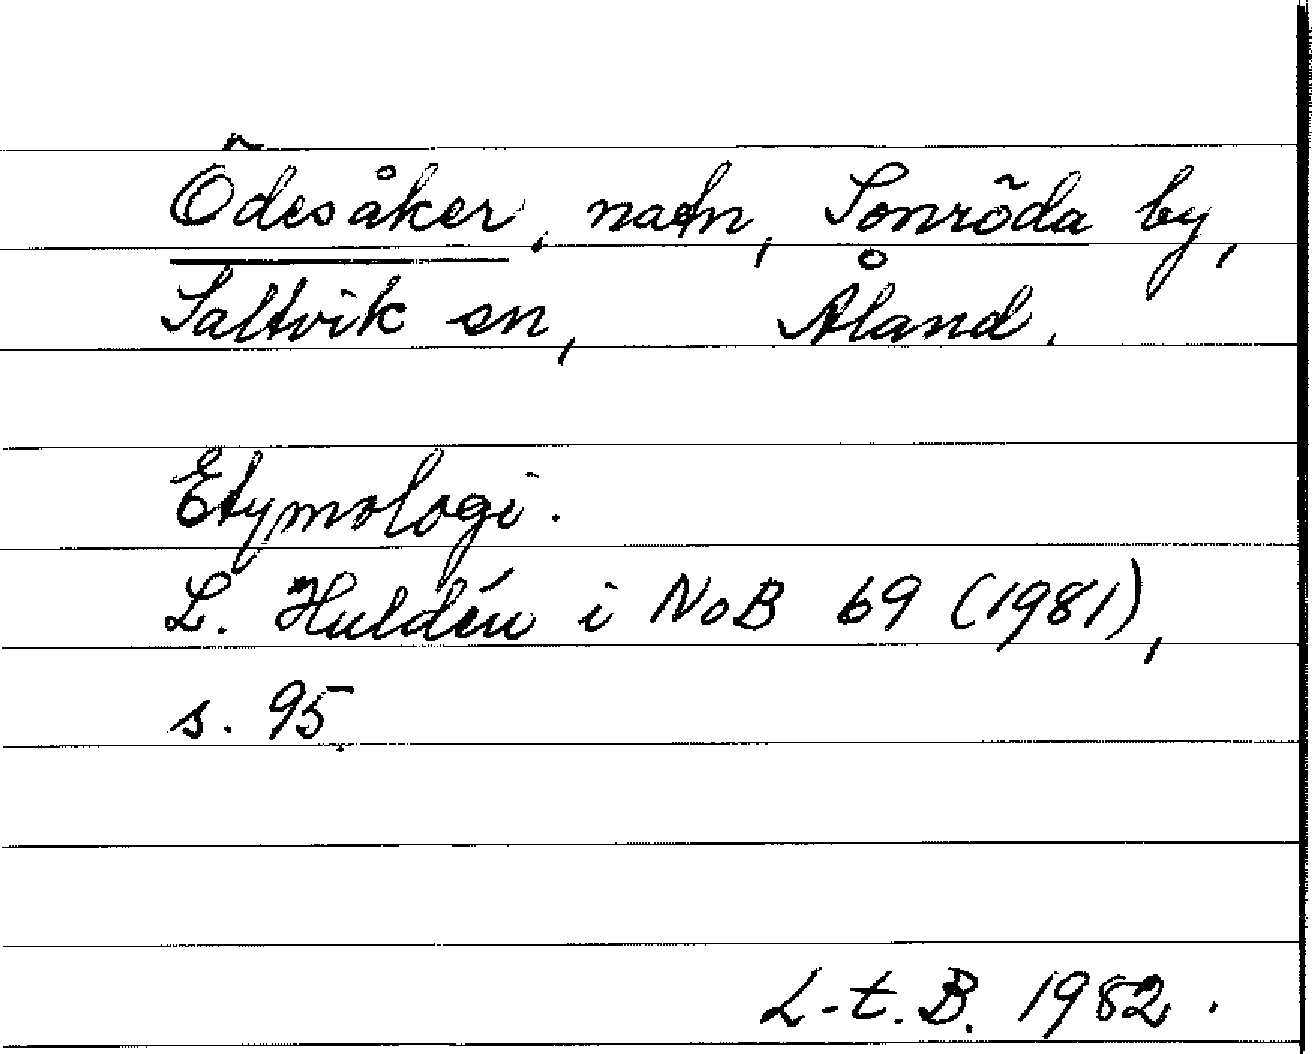 Ödesåker, nadn, Sonröda by,
Saltvik sn, Åland.
Etymologi.
L. Huldén i NoB 69 (1981),
s. 95.
L-t. B. 1982.